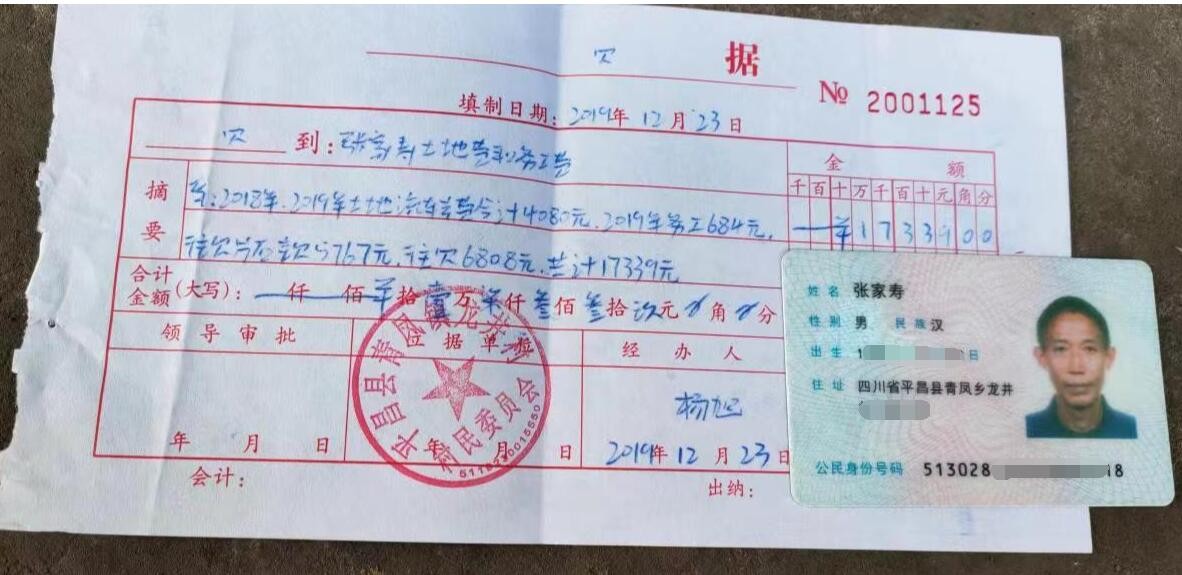 欠 据
№ 2001125
填制日期：2019年 12月 23日
欠 到：张家寿土地营和务工营
金 额
千百十万千百十元角分
17339 00
摘要
2018年、2019年土地流转营合计4080元，2019年务工684元，
往欠 5767元，往欠6808元，共计17339元
合计金额(大写)： 仟 佰 拾壹万 仟叁佰叁拾 元 角 分
领导审批
立据单位
经办人
平昌县青凤镇龙井村村民委员会
杨旭
年 月 日
年 月 日
2019年 12月 23日
会计：
出纳：
姓名 张家寿
性别 男 民族 汉
出生 1 日
住址 四川省平昌县青凤乡龙井
公民身份号码 513028 18